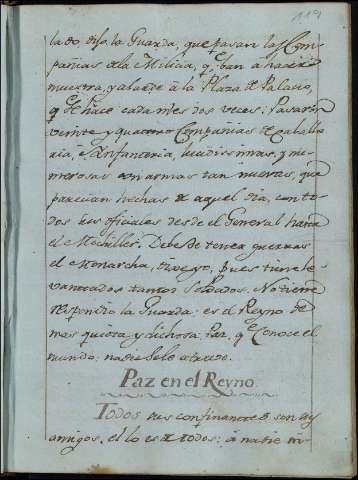 119
lado, dijo la Guarda, que pasan las Com-
pañias de la Milicia, qe ban á hacer
muestra, y alarde à la Plaza de Palacio,
qe se hace cada mes dos veces: Pasaron
veinte y quatro Compañias de Caballe-
ria, è Infanteria, lucidissimas, y nu-
merosas con armas tan nuevas, que
parecian hechas de aquel dia, con to-
dos sus oficiales desde el General hasta
el Mochiller. Debe de tener guerras
el Monarcha, dixe yo, pues tiene le-
vantados tantos Soldados. No tiene
respondio la Guarda: es el Reyno de
mas quieta, y dichosa Paz, qe Conoce el
mundo: nadie se le atreve.
Paz en el Reyno.
Todos sus confinantes son sus
amigos, el lo es de todos: á nadie in-